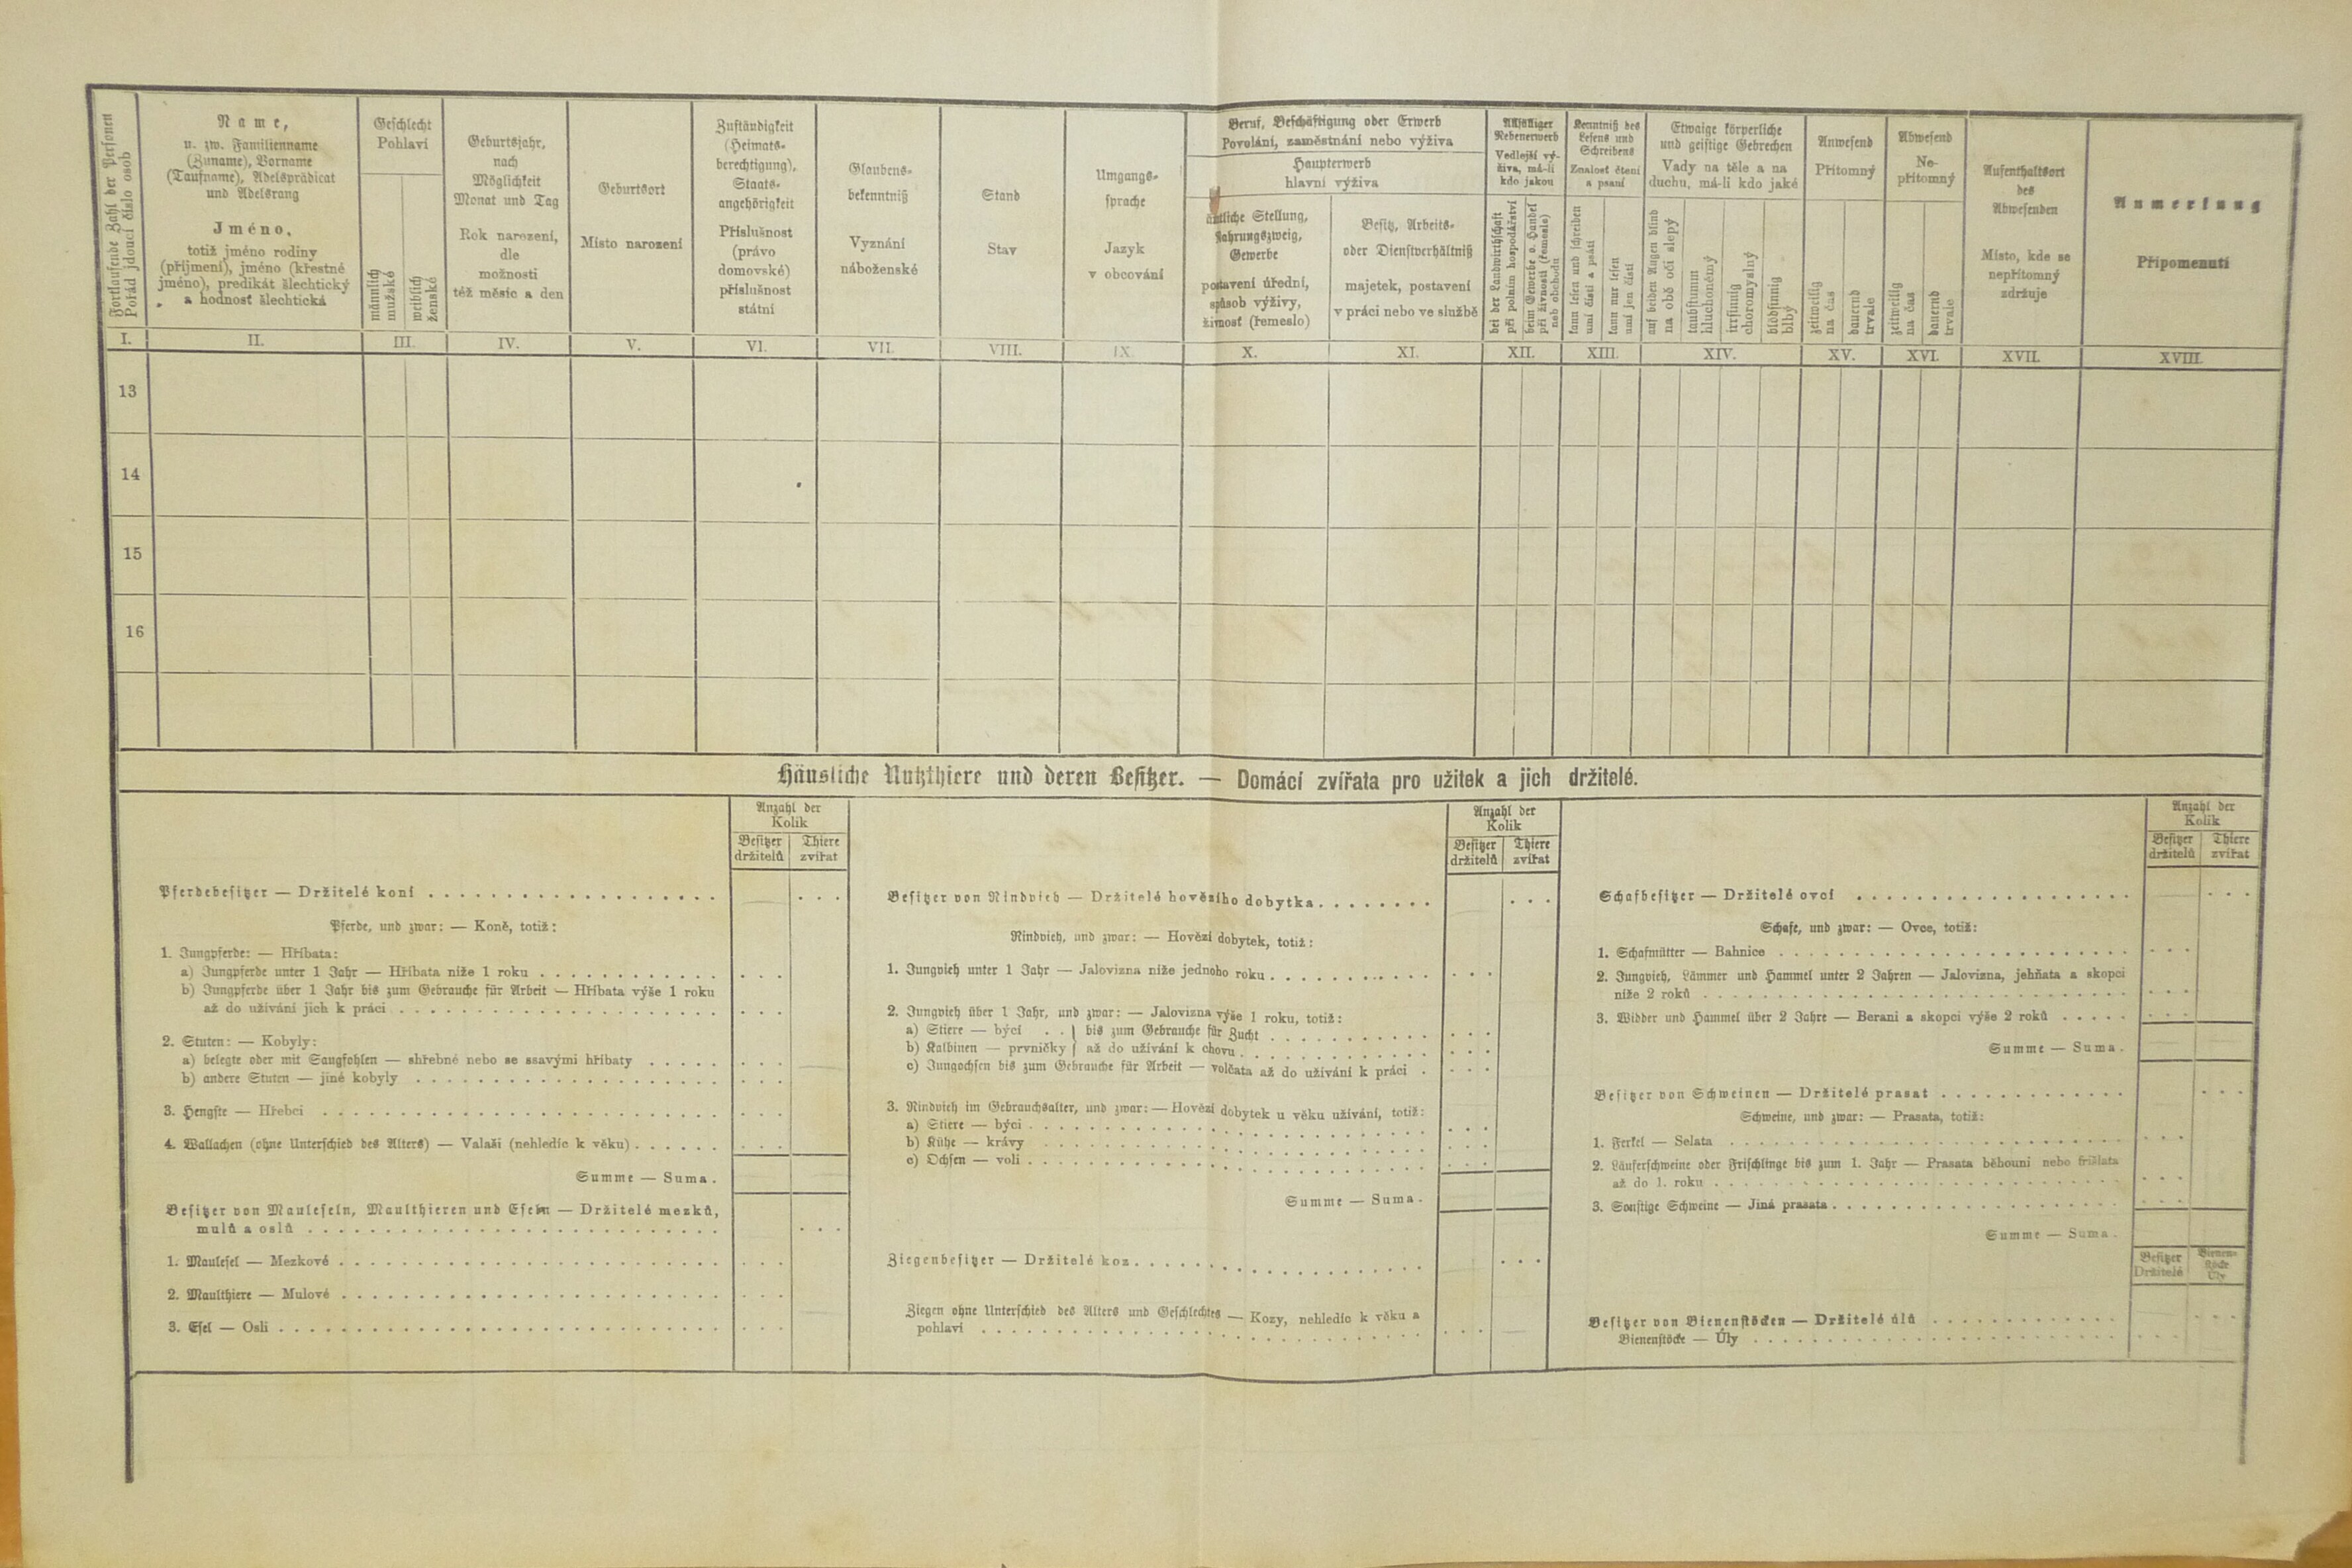 Fortlaufende Zahl der Personen
Pořád jdoucí číslo osob
I.
Name,
u. zw. Familienname
(Zuname), Vorname
(Taufname), Adelsprädicat
und Adelsrang
Jméno,
totiž jméno rodiny
(příjmení), jméno (křestné
jméno), predikát šlechtický
a hodnosť šlechtická
II.
Geschlecht
Pohlaví
männlich
mužské
weiblich
ženské
III.
Geburtsjahr,
nach
Möglichkeit
Monat und Tag
Rok narození,
dle
možnosti
též měsíc a den
IV.
Geburtsort
Místo narození
V.
Zuständigkeit
(Heimats-
berechtigung),
Staats-
angehörigkeit
Příslušnost
(právo
domovské)
příslušnost
státní
VI.
Glaubens-
bekenntniß
Vyznání
náboženské
VII.
Stand
Stav
VIII.
Umgangs-
sprache
Jazyk
v obcování
IX.
Beruf, Beschäftigung oder Erwerb
Povolání, zaměstnání nebo výživa
Haupterwerb
hlavní výživa
ämtliche Stellung,
Nahrungszweig,
Gewerbe
postavení úřední,
spůsob výživy,
živnosť (řemeslo)
X.
Besitz, Arbeits-
oder Dienstverhältniß
majetek, postavení
v práci nebo ve službě
XI.
Allfälliger
Nebenerwerb
Vedlejší vý-
živa, má-li
kdo jakou
bei der Landwirthschaft
při polním hospodářství
beim Gewerbe o. Handel
při živnosti (řemesle)
neb obchodu
XII.
Kenntniß des
Lesens und
Schreibens
Znalosť čtení
a psaní
kann lesen und schreiben
umí čísti a psáti
kann nur lesen
umí jen čísti
XIII.
Etwaige körperliche
und geistige Gebrechen
Vady na těle a na
duchu, má-li kdo jaké
auf beiden Augen blind
na obě oči slepý
taubstumm
hluchoněmý
irrsinnig
choromyslný
blödsinnig
blbý
XIV.
Anwesend
Přítomný
zeitweilig
na čas
dauernd
trvale
XV.
Abwesend
Ne-
přítomný
zeitweilig
na čas
dauernd
trvale
XVI.
Aufenthaltsort
des
Abwesenden
Místo, kde se
nepřítomný
zdržuje
XVII.
Anmerkung
Připomenutí
XVIII.
13
14
15
16
Häusliche Nutzthiere und deren Besitzer. — Domácí zvířata pro užitek a jich držitelé.
Anzahl der
Kolik
Besitzer
držitelů
Thiere
zvířat
Pferdebesitzer — Držitelé koní . . . . . . . . . . . . . . . . . . .
Pferde, und zwar: — Koně, totiž:
1. Jungpferde: — Hříbata:
a) Jungpferde unter 1 Jahr — Hříbata níže 1 roku . . . . . . . . . . . .
b) Jungpferde über 1 Jahr bis zum Gebrauche für Arbeit — Hříbata výše 1 roku
až do užívání jich k práci . . . . . . . . . . . . . . . . . . . . .
2. Stuten: — Kobyly:
a) belegte oder mit Saugfohlen — shřebné nebo se ssavými hříbaty . . . . .
b) andere Stuten — jiné kobyly . . . . . . . . . . . . . . . . . . . .
3. Hengste — Hřebci . . . . . . . . . . . . . . . . . . . . . . . . . .
4. Wallachen (ohne Unterschied des Alters) — Valaši (nehledíc k věku) . . . . . .
Summe — Suma.
Besitzer von Mauleseln, Maulthieren und Eseln — Držitelé mezků,
mulů a oslů . . . . . . . . . . . . . . . . . . . . . . . . . . .
1. Maulesel — Mezkové . . . . . . . . . . . . . . . . . . . . . . . .
2. Maulthiere — Mulové . . . . . . . . . . . . . . . . . . . . . . . .
3. Esel — Osli . . . . . . . . . . . . . . . . . . . . . . . . . . . .
Anzahl der
Kolik
Besitzer
držitelů
Thiere
zvířat
Besitzer von Rindvieh — Držitelé hovězího dobytka . . . . . . . .
Rindvieh, und zwar: — Hovězí dobytek, totiž:
1. Jungvieh unter 1 Jahr — Jalovizna níže jednoho roku . . . . . . . . . . . .
2. Jungvieh über 1 Jahr, und zwar: — Jalovizna výše 1 roku, totiž:
a) Stiere — býci . . } bis zum Gebrauche für Zucht . . . . . . . . . . . .
b) Kalbinen — prvničky } až do užívání k chovu . . . . . . . . . . . . . .
c) Jungochsen bis zum Gebrauche für Arbeit — volčata až do užívání k práci .
3. Rindvieh im Gebrauchsalter, und zwar: — Hovězí dobytek u věku užívání, totiž:
a) Stiere — býci . . . . . . . . . . . . . . . . . . . . . . . . . .
b) Kühe — krávy . . . . . . . . . . . . . . . . . . . . . . . . . .
c) Ochsen — voli . . . . . . . . . . . . . . . . . . . . . . . . . .
Summe — Suma.
Ziegenbesitzer — Držitelé koz . . . . . . . . . . . . . . . . . . .
Ziegen ohne Unterschied des Alters und Geschlechtes — Kozy, nehledíc k věku a
pohlaví . . . . . . . . . . . . . . . . . . . . . . . . . . . . .
Anzahl der
Kolik
Besitzer
držitelů
Thiere
zvířat
Schafbesitzer — Držitelé ovcí . . . . . . . . . . . . . . . . . . .
Schafe, und zwar: — Ovce, totiž:
1. Schafmütter — Bahnice . . . . . . . . . . . . . . . . . . . . . . .
2. Jungvieh, Lämmer und Hammel unter 2 Jahren — Jalovizna, jehňata a skopci
níže 2 roků . . . . . . . . . . . . . . . . . . . . . . . . . . . .
3. Widder und Hammel über 2 Jahre — Berani a skopci výše 2 roků . . . . .
Summe — Suma.
Besitzer von Schweinen — Držitelé prasat . . . . . . . . . . . . .
Schweine, und zwar: — Prasata, totiž:
1. Ferkel — Selata . . . . . . . . . . . . . . . . . . . . . . . . . .
2. Läuferschweine oder Frischlinge bis zum 1. Jahr — Prasata běhouni nebo frišlata
až do 1. roku . . . . . . . . . . . . . . . . . . . . . . . . . . .
3. Sonstige Schweine — Jiná prasata . . . . . . . . . . . . . . . . . . .
Summe — Suma.
Besitzer
Držitelé
Bienen-
stöcke
Úly
Besitzer von Bienenstöcken — Držitelé úlů . . . . . . . . . . . . .
Bienenstöcke — Úly . . . . . . . . . . . . . . . . . . . . . . . .